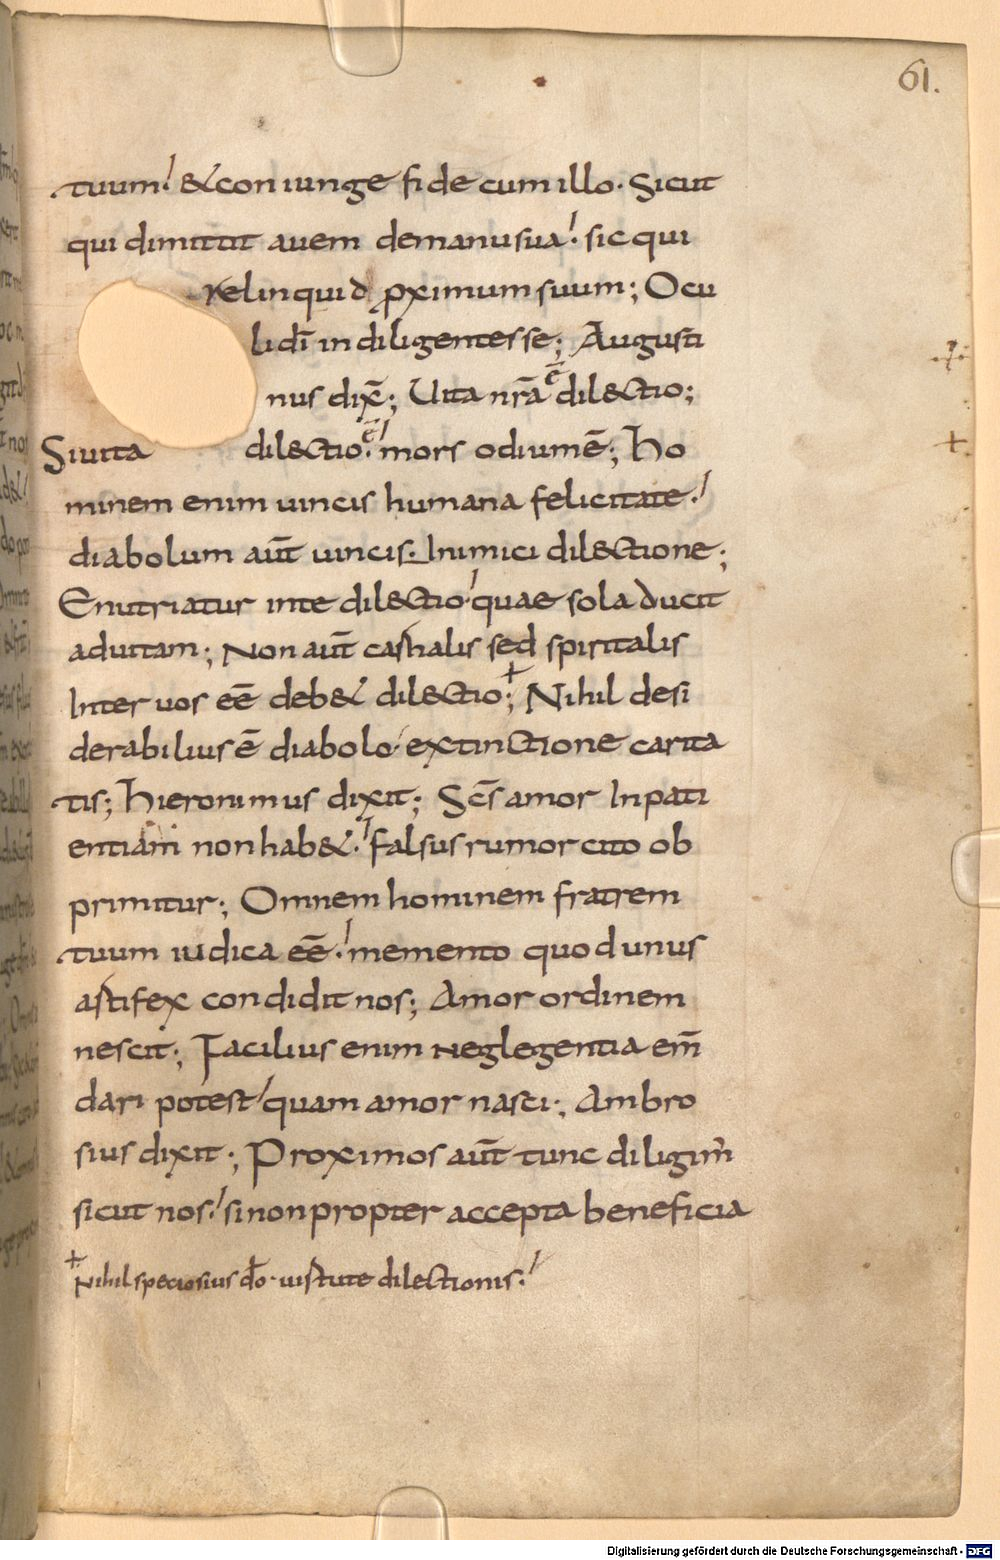 61.
tuum. & coniunge fide cum illo. Sicut
qui dimittit auem demanu sua. sic qui
relinquid p̱ximum suum; Ocu
li dī in diligentes se; Augusti
nus dix̄; Uita nrā ē dil&ctio;
Si uita dil&ctio ē. mors odium ē; Ho
minem enim uincis humana felicitate.
diabolum aūt uincis. Inimici dil&ctione;
Enutriatur inte dil&ctio. quae sola ducit
aduitam; Non aūt carnalis sed spiritalis
Inter uos eē deb& dil&ctio; + Nihil desi
derabilius ē diabolo. extinctione carita
tis; hieronimus dixit; Sc̄s amor Inpati
entiam non hab&. falsus rumor cito ob
primitur; Omnem hominem fratrem
tuum iudica eē. memento quod unus
artifex condidit nos; Amor ordinem
nescit; Facilius enim neglegentia em̄
dari potest quam amor nasci; Ambro
sius dixit; Proximos aūt tunc diligim̄
sicut nos. si non propter accepta beneficia
+ Nihil speciosius dō. uirtute dilectionis.
Digitalisierung gefördert durch die Deutsche Forschungsgemeinschaft - DFG